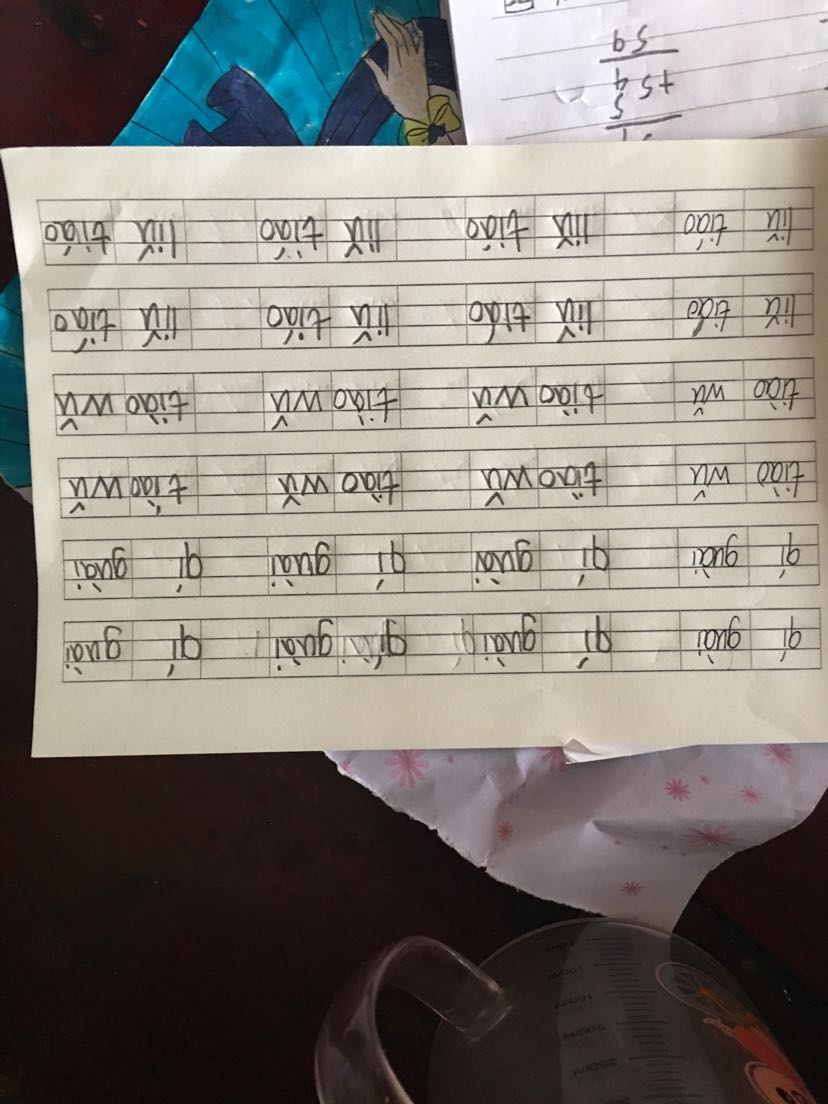 qí guài qí guài qí guài qí guài
qí guài qí guài qí guài qí guài
tiào wǔ tiào wǔ tiào wǔ tiào wǔ
tiào wǔ tiào wǔ tiào wǔ tiào wǔ
liǔ tiáo liǔ tiáo liǔ tiáo liǔ tiáo
liǔ tiáo liǔ tiáo liǔ tiáo liǔ tiáo
5
+54
59
250ml
200ml
150ml
100ml